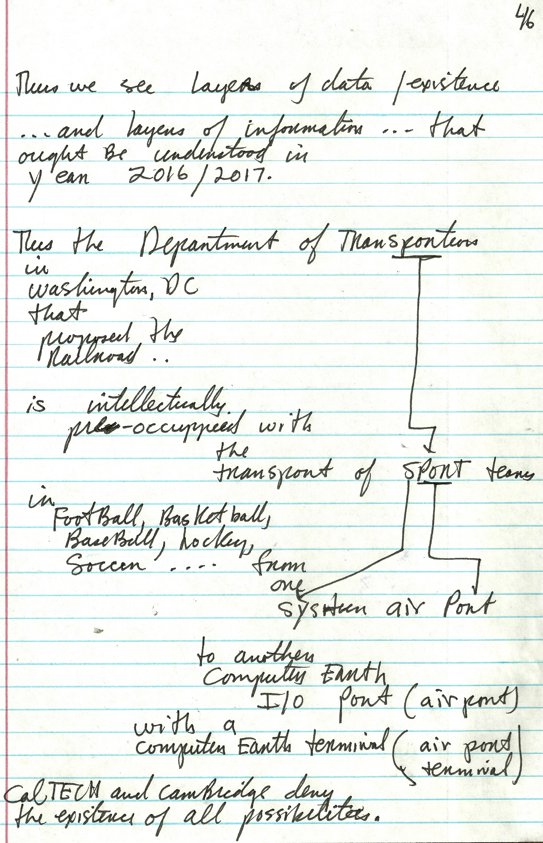 4/6
Thus we see layers of data / existence
... and layers of information ... that
ought Be understood in
year 2016/2017.
Thus the Department of Transportion
in
Washington, DC
that
proposed the
Railroad ..
is intellectually
pre-occuppied with
the
transport of SPORT teams
in
FootBall, Basketball,
BaseBall, hockey,
Soccer .... from
one
system air Port
to another
Computer Earth
I/O port (air port)
with a
computer Earth terminal (air port
terminal)
CalTECH and CamBridge deny
the existence of all possibilities.